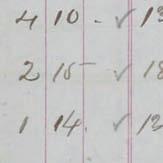 4 10 - ✓ 13
2 15 - ✓ 18
1 14. ✓ 12